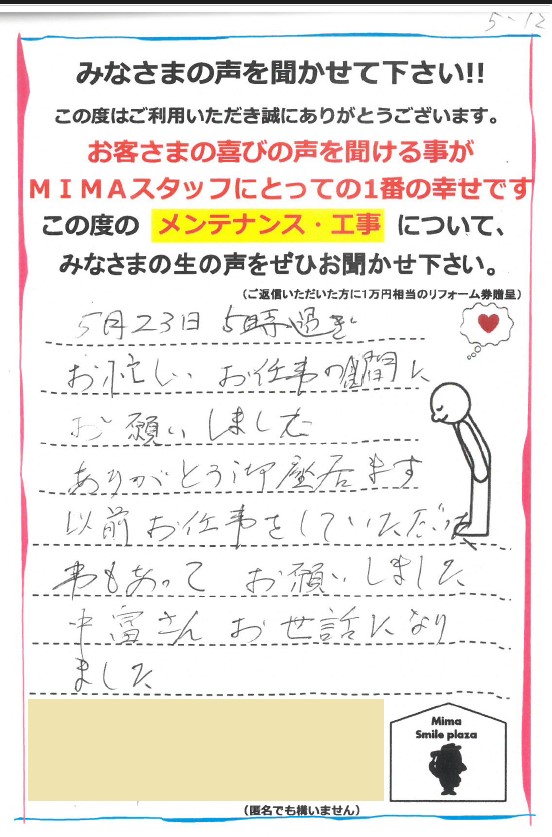 5-12
みなさまの声を聞かせて下さい!!
この度はご利用いただき誠にありがとうございます。
お客さまの喜びの声を聞ける事が
MIMAスタッフにとっての1番の幸せです
この度の メンテナンス・工事 について、
みなさまの生の声をぜひお聞かせ下さい。
(ご返信いただいた方に1万円相当のリフォーム券贈呈)
5月23日 5時過ぎ
お忙しい お仕事の間に
お願いしました
ありがとう御座居ます
以前お仕事をしていただいた
事もあって お願いしました
中富さん お世話になり
ました
Mima
Smile plaza
(匿名でも構いません)